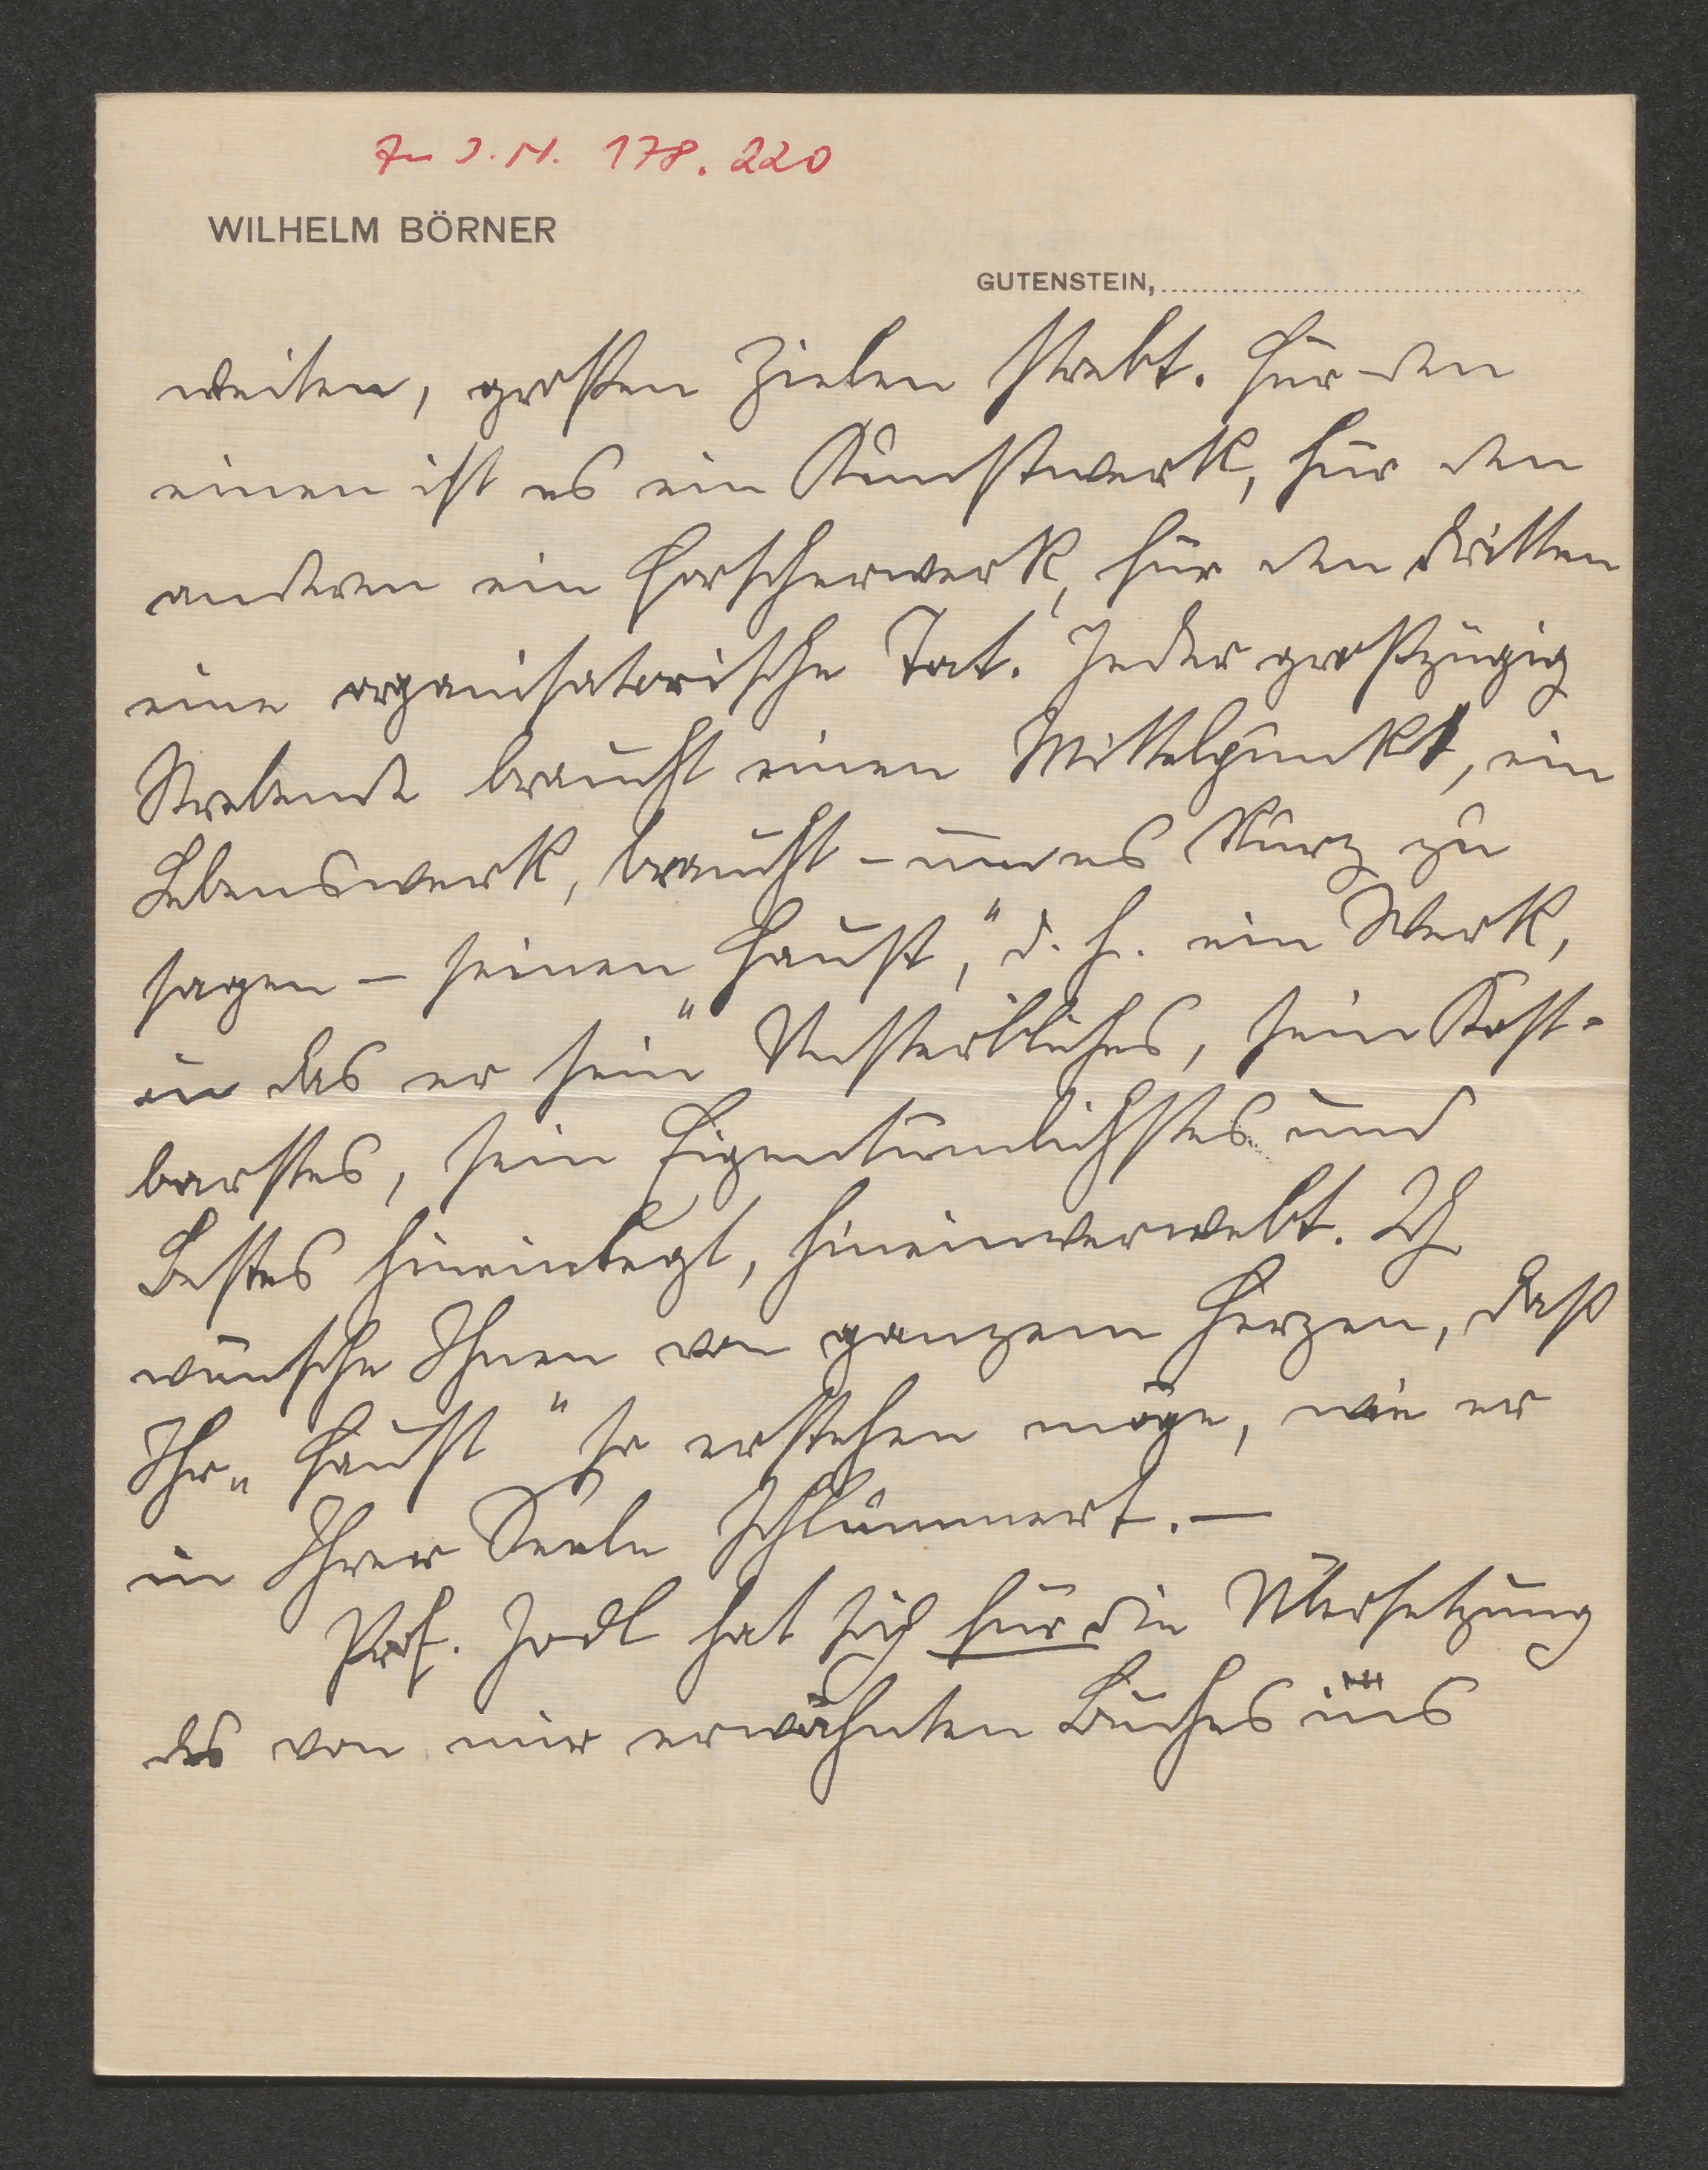 Zu I.N. 178.220
WILHELM BÖRNER
GUTENSTEIN,
weiten, großen Zielen strebt. Für den
einen ist es ein Kunstwerk, für den
anderen ein Forscherwerk, für den dritten
eine organisatorische Tat. Jeder großzügig
Strebende braucht einen Mittelpunkt, ein
Lebenswerk, braucht – um es kurz zu
sagen – seinen „Faust“, d. h. ein Werk,
in das er sein Unsterbliches, sein Kost-
barstes, sein Eigentümlichstes und
Bestes hineinlegt, hineinverwebt. Ich
wünsche Ihnen von ganzem Herzen, daß
Ihr „Faust“ so erstehen möge, wie er
in Ihrer Seele schlummert. –
Prof. Jodl hat sich für die Übersetzung
des von mir erwähnten Buches ins